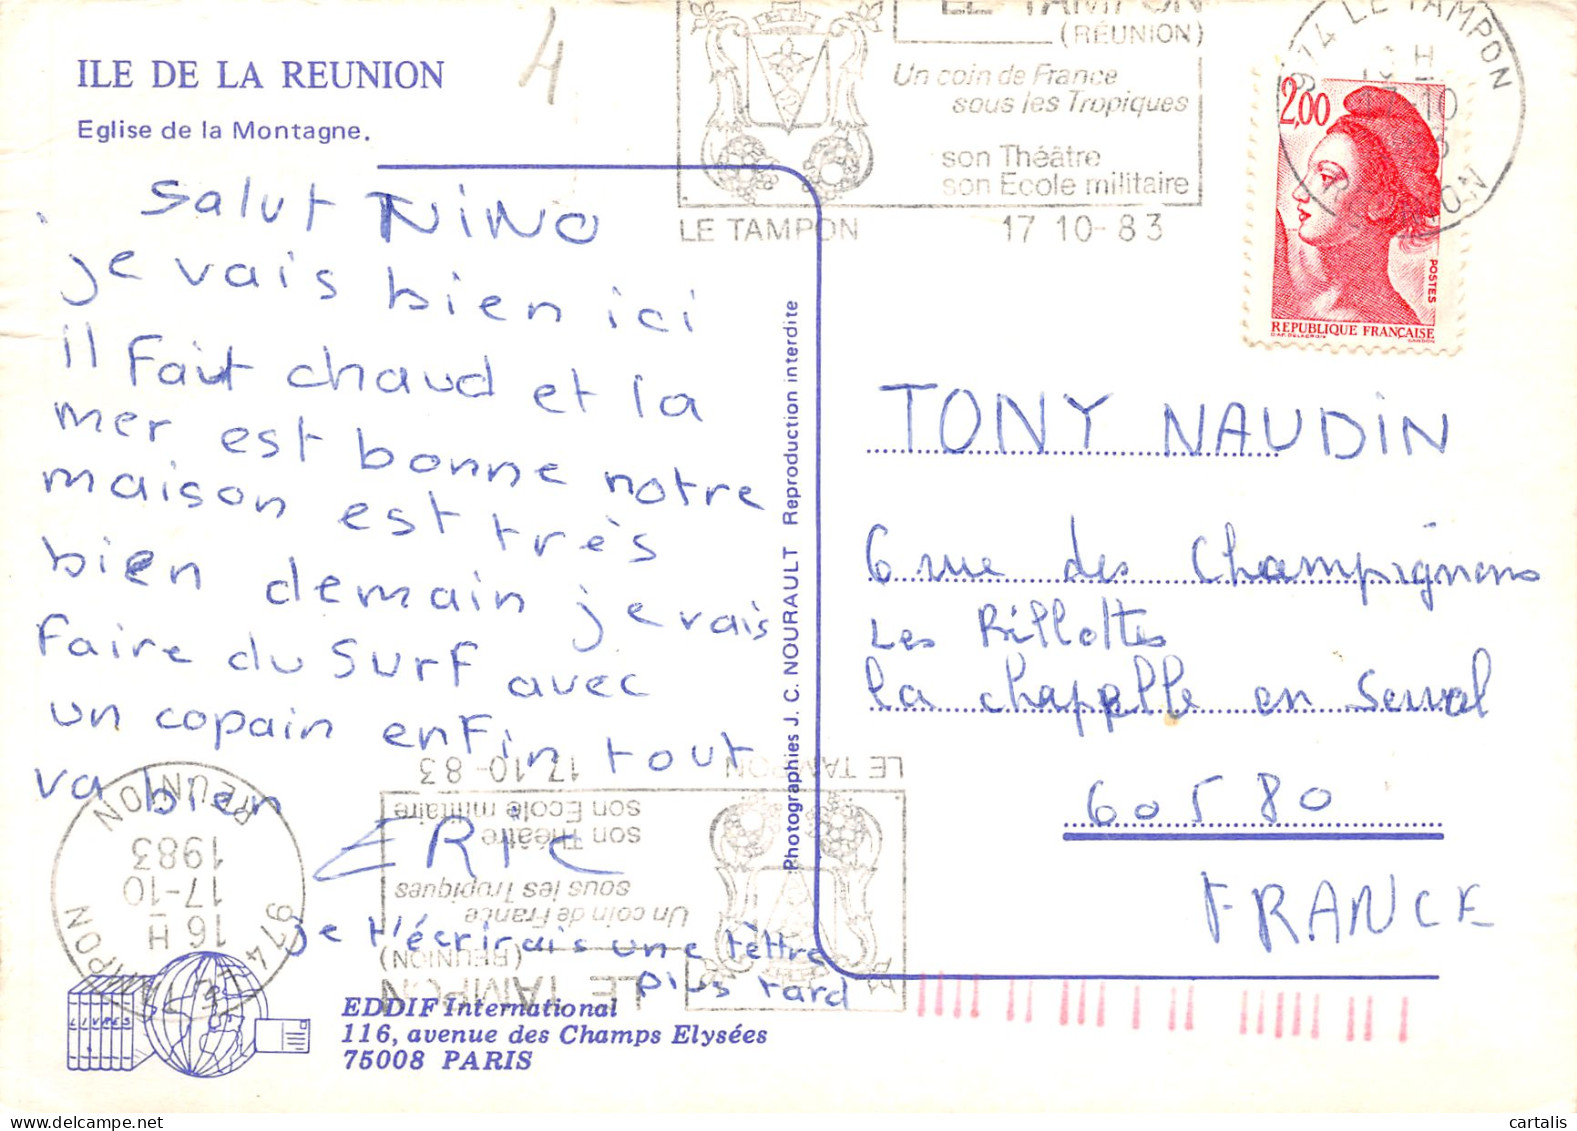 ILE DE LA REUNION
Eglise de la Montagne.
4
LE TAMPON
(RÉUNION)
Un coin de France
sous les Tropiques
son Théâtre
son Ecole militaire
LE TAMPON 17 10-83
974 LE TAMPON
RÉUNION
2,00
POSTES
REPUBLIQUE FRANÇAISE
salut NINO
je vais bien ici
il fait chaud et la
mer est bonne notre
maison est très
bien demain je vais
faire du surf avec
un copain enfin tout
va bien
ERIC
je t'écrirais une lèttre
plus tard
Photographies J. C. NOURAULT Reproduction interdite
TONY NAUDIN
6 rue des Champignons
Les Rillottes
la chapelle en Serval
60580
FRANCE
LE TAMPON 17 10-83
LE TAMPON
(RÉUNION)
Un coin de France
sous les Tropiques
son Théâtre
son Ecole militaire
974 LE TAMPON
16 H
17-10
1983
RÉUNION
LIVRES
EDDIF International
116, avenue des Champs Elysées
75008 PARIS
cartalis